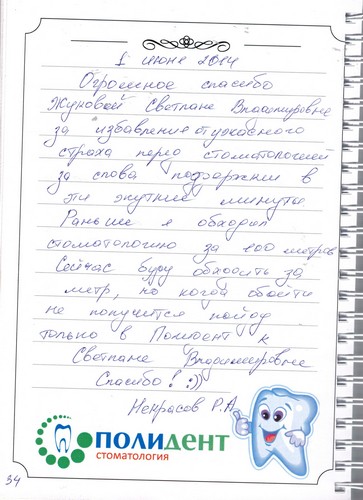 1 июне 2014
Огромное спасибо
Жуковой Светлане Владимировне
за избавление от ужасного
страха перед стоматологией
за слова поддержки в
эти жуткие минуты
Раньше я обходил
стоматологию за 100 метров
Сейчас буду обходить за
метр, но когда обойти
не получится пойду
только в Полидент к
Светлане Владимировне
Спасибо! :))
Некрасов Р.А.
ПОЛИДЕНТ
СТОМАТОЛОГИЯ
34